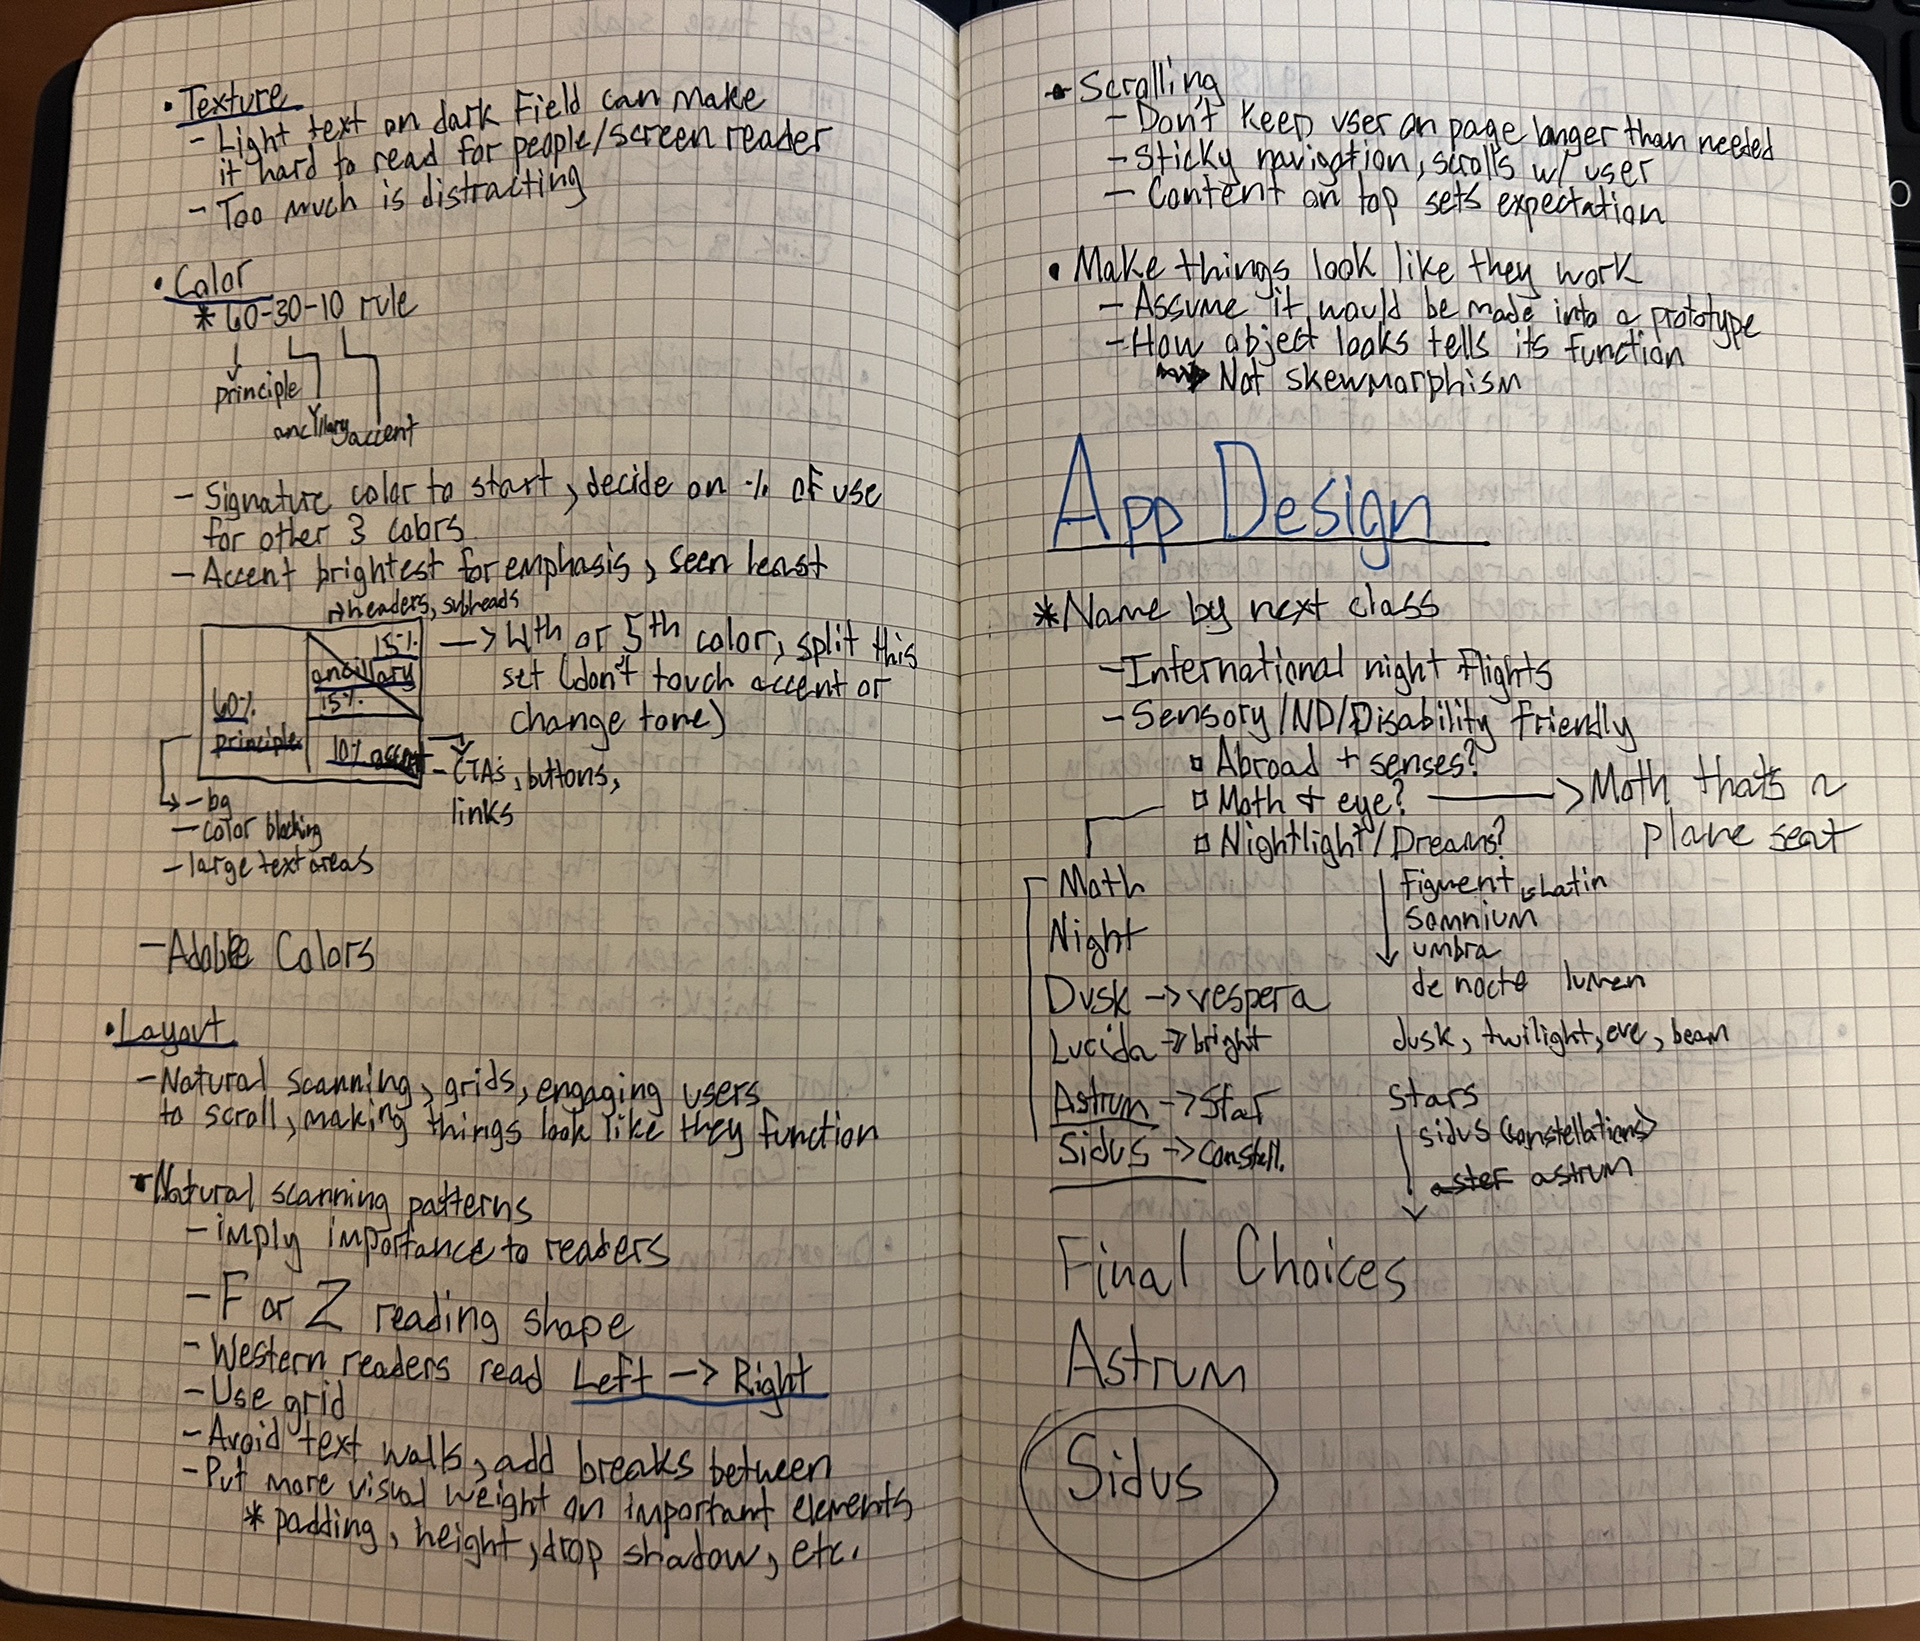 • Texture
- Light text on dark Field can make
it hard to read for people/screen reader
- Too much is distracting
• Color
* 60-30-10 rule
principle
ancillary
accent
- Signature color to start, decide on % of use
for other 3 colors
- Accent brightest for emphasis, seen least
→ headers, subheads
15%
ancillary
15%
60%
principle
10% accent
→ 4th or 5th color, split this
set (don't touch accent or
change tone)
- CTAs, buttons,
links
- bg
- color blocking
- large text areas
- Adobe Colors
• Layout
- Natural scanning, grids, engaging users
to scroll, making things look like they function
Natural scanning patterns
- imply importance to readers
- F or Z reading shape
- Western readers read Left -> Right
- Use grid
- Avoid text walls, add breaks between
- Put more visual weight on important elements
* padding, height, drop shadow, etc.
Scrolling
- Don't keep user on page longer than needed
- Sticky navigation, scrolls w/ user
- Content on top sets expectation
• Make things look like they work
- Assume it would be made into a prototype
- How object looks tells its function
Not skewmorphism
App Design
* Name by next class
- International night flights
- Sensory/ND/Disability friendly
▫ Abroad + senses?
▫ Moth + eye? → Moth thats a
plane seat
▫ Nightlight/Dreams?
Moth
Night
Dusk -> vespera
Lucida -> bright
Astrum -> Star
Sidus -> Constell.
Figment Latin
somnium
umbra
de nocte lumen
dusk, twilight, eve, beam
Stars
sidus (constellations)
aster astrum
Final Choices
Astrum
Sidus